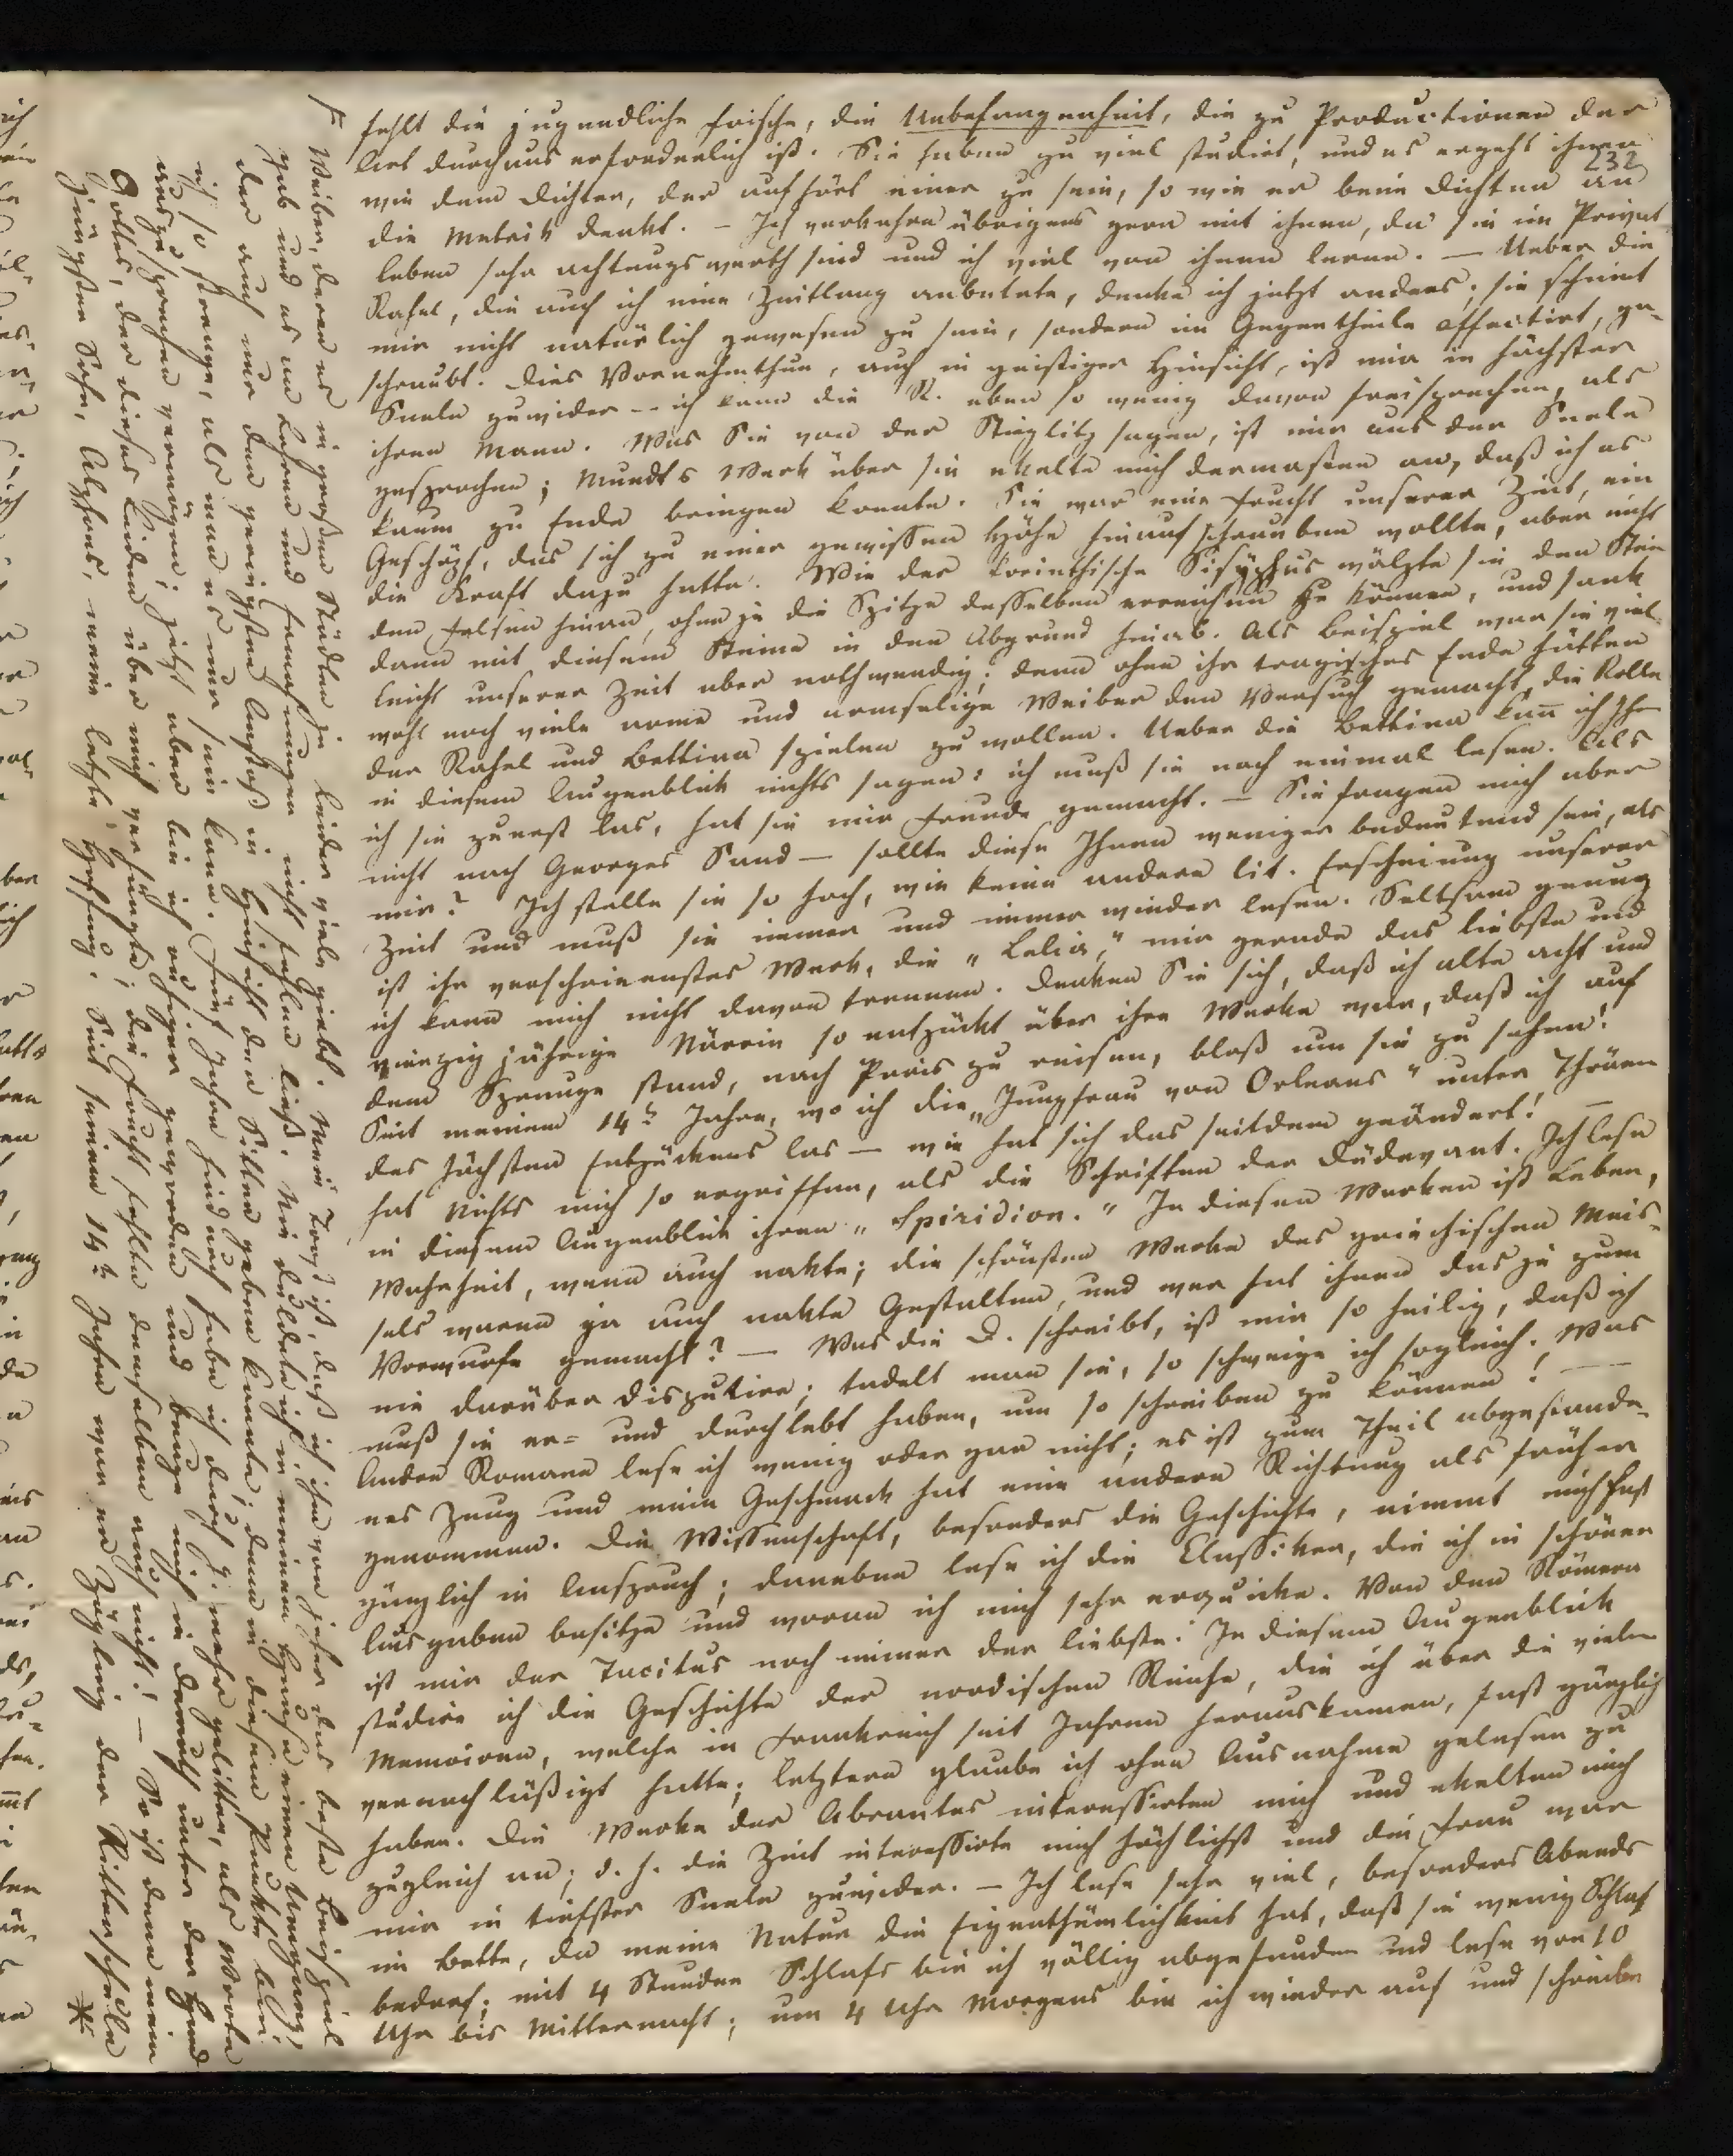 fehlt die jugendliche Frische, die Unbefangenheit, die zu Productionen der
Art durchaus erforderlich ist. Sie haben zu viel studirt, und es ergeht ihnen
232
wie dem Dichter, der aufhört einer zu sein, so wie er beim Dichten an
die Metrik denkt. – Ich verkehre übrigens gern mit ihnen, da sie im Privat
leben sehr achtungswerth sind und ich viel von ihnen lerne. – Ueber die
Rahel, die auch ich eine Zeitlang anbetete, denke ich jetzt anders; sie scheint
mir nicht natürlich gewesen zu sein, sondern im Gegentheile affectirt, ge-
schraubt. Dies Vornehmthun, auch in geistiger Hinsicht, ist mir in höchster
Seele zuwider -- ich kann die R. eben so wenig davon freisprechen, als
ihren Mann. Was Sie von der Stieglitz sagen, ist mir aus der Seele
gesprochen; Mundt's Werk über sie ekelte mich dermaßen an, daß ich es
kaum zu Ende bringen konnte. Sie war eine Frucht unserer Zeit, ein
Geschöpf, das sich zu einer gewissen Höhe hinauf schrauben wollte, aber nicht
die Kraft dazu hatte. Wie der korinthische Sisyphus wälzte sie den Stein
den Felsen hinan, ohne je die Spitze desselben erreichen zu können, und sank
dann mit diesem Steine in den Abgrund hinab. Als Beispiel war sie viel-
leicht unserer Zeit aber nothwendig; denn ohne ihr tragisches Ende hätten
wohl noch viele arme und armselige Weiber den Versuch gemacht, die Rolle
der Rahel und Bettina spielen zu wollen. Ueber die Bettina kan̅ ich Ihn
in diesem Augenblick nichts sagen: ich muß sie noch einmal lesen. Als
ich sie zuerst las, hat sie mir Freude gemacht. – Sie fragen mich aber
nicht nach Georges Sand – sollte diese Ihnen weniger bedeutend sein, als
mir? Ich stelle sie so hoch, wie keine andere lit. Erscheinung unserer
Zeit und muß sie immer und immer wieder lesen. Seltsam genug
ist ihr verschrieenstes Werk, die „Lelia," mir gerade das liebste und
ich kann mich nicht davon trennen. Denken Sie sich, daß ich alte acht und
vierzig jährige Närrin so entzückt über ihre Werke war, daß ich auf
dem Sprunge stand, nach Paris zu reisen, bloß um sie zu sehen!
Seit meinem 14t Jahre, wo ich die „Jungfrau von Orleans" unter Thränen
des höchsten Entzückens las – wie hat sich das seitdem geändert! –
hat Nichts mich so ergriffen, als die Schriften der Düdevant. Ich lese
in diesem Augenblick ihren „Spiridion." In diesen Werken ist Leben,
Wahrheit, wenn auch nakte; die schönsten Werke des griechischen Meis-
sels waren ja auch nakte Gestalten, und wer hat ihnen das je zum
Vorwurfe gemacht? – Was die D. schreibt, ist mir so heilig, daß ich
nie darüber disputire; tadelt man sie, so schweige ich sogleich. Was
muß sie er= und durchlebt haben, um so schreiben zu können! –
Andre Romane lese ich wenig oder gar nicht; es ist zum Theil abgestande-
nes Zeug und mein Geschmack hat eine andere Richtung als früher
genommen. Die Wissenschaft, besonders die Geschichte, nimmt mich fast
gänzlich in Anspruch; daneben lese ich die Classiker, die ich in schönen
Ausgaben besitze und woran ich mich sehr erquicke. Von den Römern
ist mir der Tacitus noch immer der liebste. In diesem Augenblick
studire ich die Geschichte der nordischen Reiche, die ich über die vielen
Memoiren, welche in Frankreich seit Jahren herauskamen, fast gänzlich
vernachläßigt hatte; letztere glaube ich ohne Ausnahme gelesen zu
haben. Die Werke der Abrantes interessirten mich und ekelten mich
zugleich an; d. h. die Zeit interessirte mich höchlichst und die Frau war
mir in tiefster Seele zuwider. – Ich lese sehr viel, besonders Abends
im Bette, da meine Natur die Eigenthümlichkeit hat, daß sie wenig Schlaf
bedarf; mit 4 Stunden Schlafs bin ich völlig abgefunden und lese von 10
Uhr bis Mitternacht; um 4 Uhr Morgens bin ich wieder auf und schreibe
Weiber, deren es in großen Städten ja leider viele giebt. Mein Trost ist, daß ich ihm von jeher das beste Beispiel
gab und es an Lehren und Ermahnungen nicht fehlen ließ. Nie duldete ich in meinem Hause einen Umgang,
der auch nur den geringsten Anstoß in Hinsicht der Sitten geben konnte; denn in diesem Punkte bin
ich so strenge, als man es nur sein kann. Fünf Jahre hindurch habe ich durch ihn mehr gelitten, als Worte
auszusprechen vermögen; jetzt aber bin ich ruhiger geworden und beuge mich in Demuth unter der Hand
Gottes, der dieses Leiden über mich verhängte; die Frucht fehlte demselben auch nicht! – So ist denn mein
jüngster Sohn, Alphons, meine letzte Hoffnung. Seit seinem 14t Jahre war er Zögling der Ritterschule
*